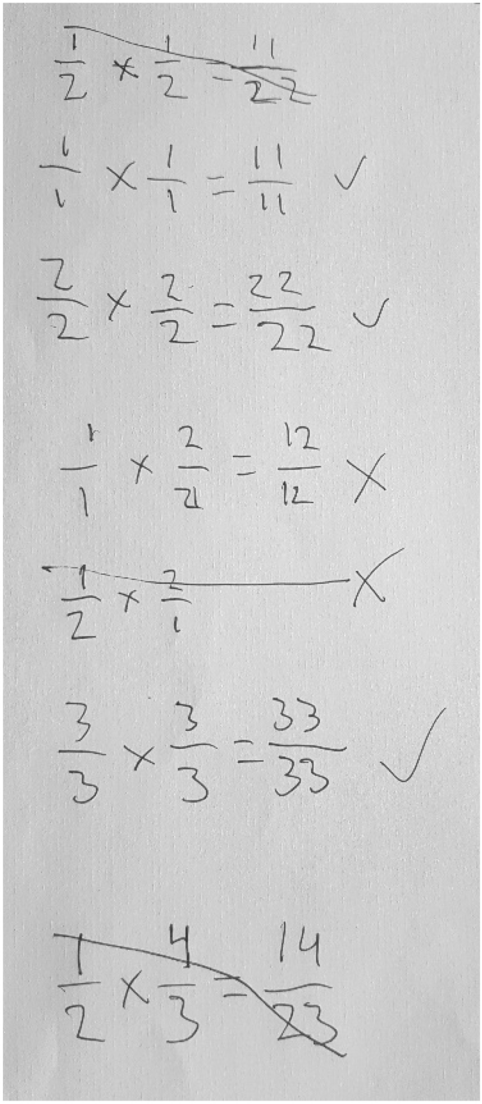 1/2 × 1/2 = 11/22
1/1 × 1/1 = 11/11 ✓
2/2 × 2/2 = 22/22 ✓
1/1 × 2/2 = 12/12 ✗
1/2 × 2/1 ✗
3/3 × 3/3 = 33/33 ✓
1/2 × 4/3 = 14/23